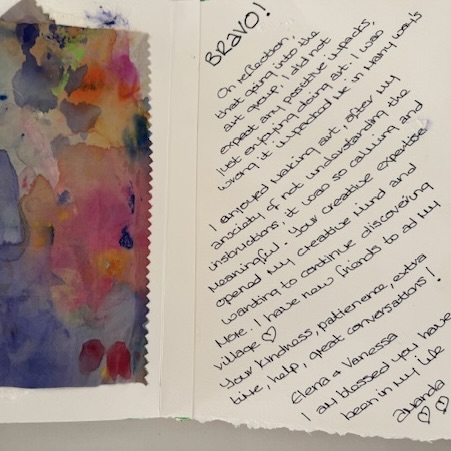 BRAVO!
On reflection,
that going into the
art group, I did not
expect any positive impacts,
just enjoying doing art. I was
wrong it impacted me in many ways
I enjoyed making art, after my
anxiety of not understanding the
instructions it was so calming and
meaningful. Your creative expertise
opened my creative mind and
wanting to continue discovering
more. I have new friends to ad my
village ♡
Your kindness, patienence, extra
time, help, great conversations!
Elena & Vanessa
I am blessed you have
been in my life
Amanda
♡ ♡